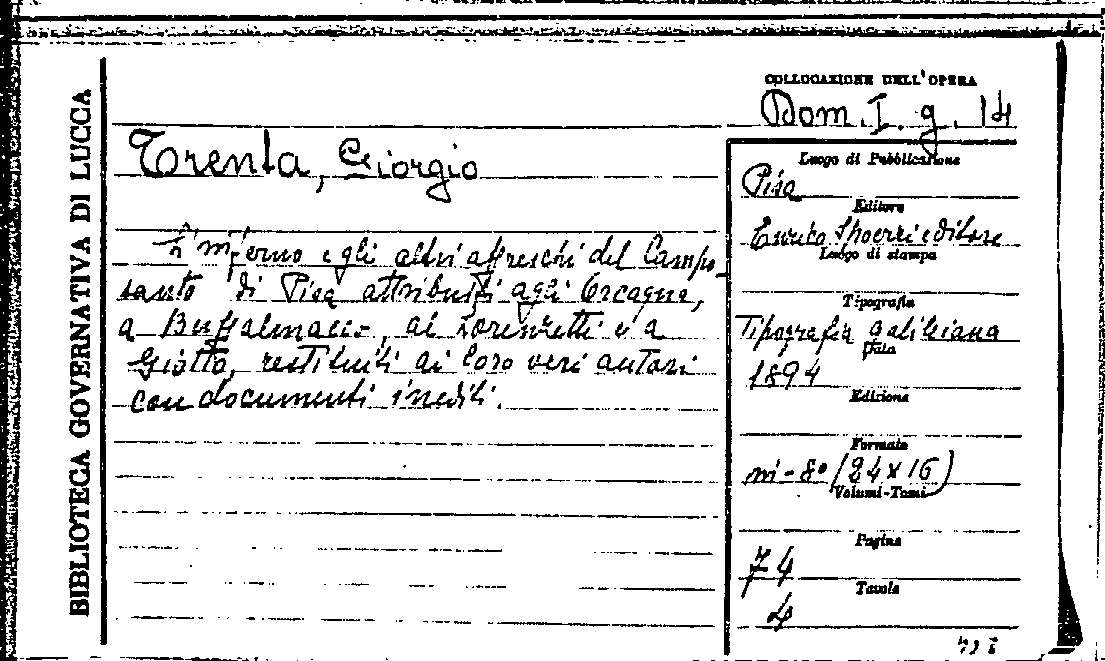 BIBLIOTECA GOVERNATIVA DI LUCCA
COLLOCAZIONE DELL'OPERA
Dom. I. g. 14
Trenta, Giorgio
L'inferno e gli altri affreschi del Campo
santo di Pisa attribuiti agli Orcagna,
a Buffalmacco, ai Lorenzetti e a
Giotto, restituiti ai loro veri autori
con documenti inediti.
Luogo di Pubblicazione
Pisa
Editore
Enrico Spoerri editore
Luogo di stampa
Tipografia
Tipografia galileiana
Data
1894
Edizione
Formato
in-8° (24x16)
Volumi-Tomi
Pagine
74
Tavole
4